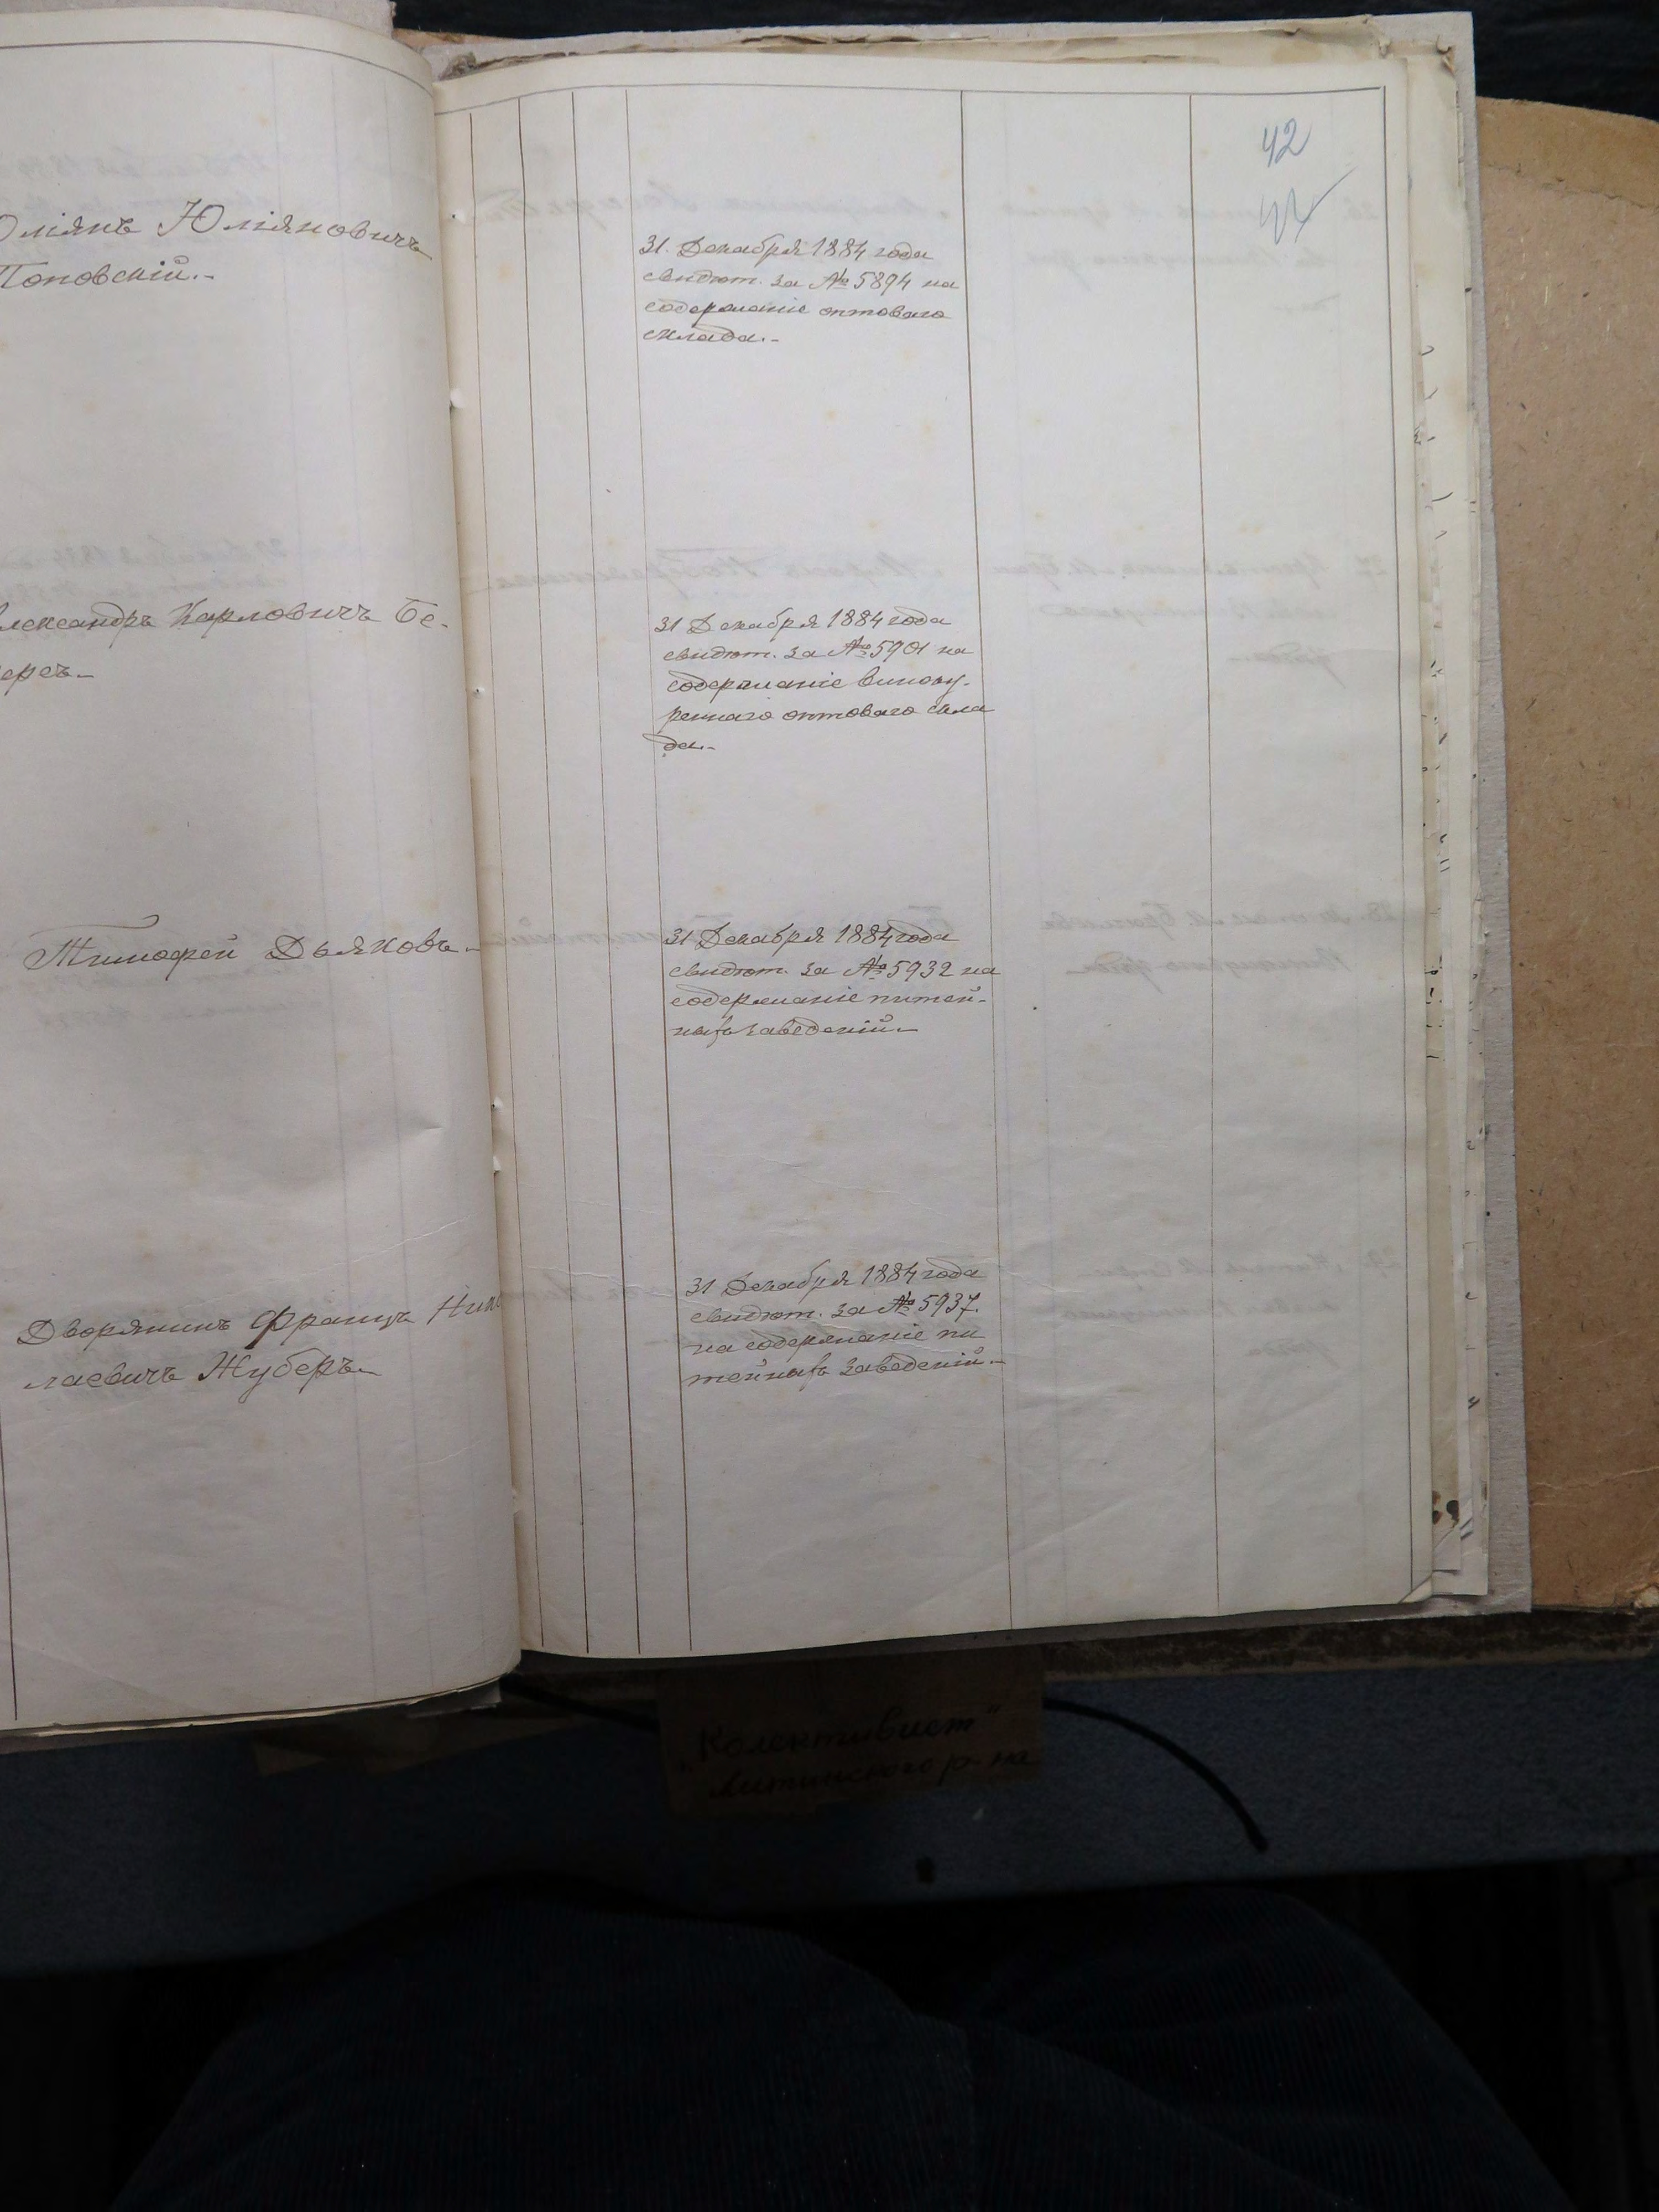 42
Юліянъ Юліяновичъ
Поповскій.-
31. Декабря 1884 года
свидѣт. за № 5894 на
содержаніе оптоваго
склада.-
Александръ Карловичъ Бе-
еръ.-
31 Декабря 1884 года
свидѣт. за № 5901 на
содержаніе виноку-
реннаго оптоваго скла
да.-
Тимофей Дьяковъ.-
31 Декабря 1884 года
свидѣт. за № 5932 на
содержаніе питей-
ныхъ заведеній.-
Дворянинъ Францъ Нико
лаевичъ Жуберъ.-
31 Декабря 1884 года
свидѣт. за № 5937.
на содержаніе пи
тейныхъ заведеній.-
„Колективист"
Литинского р-на